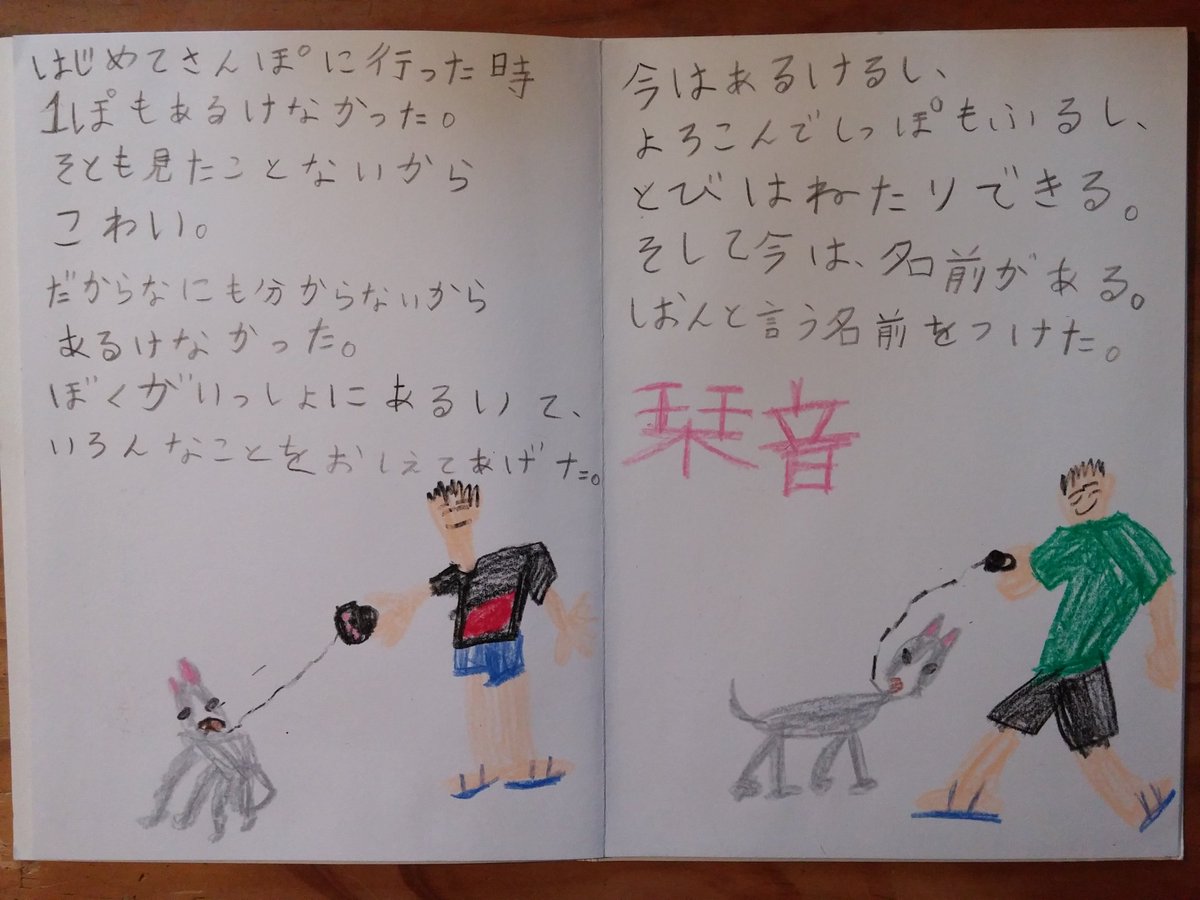 はじめてさんぽに行った時
1ぽもあるけなかった。
そとも見たことないから
こわい。
だからなにも分からないから
あるけなかった。
ぼくがいっしょにあるいて、
いろんなことをおしえてあげた。
今はあるけるし、
よろこんでしっぽもふるし、
とびはねたりできる。
そして今は、名前がある。
しおんと言う名前をつけた。
栞音